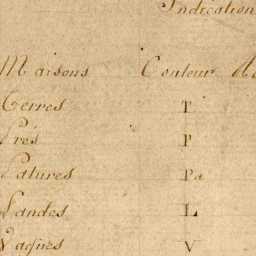 Indication
Maisons Couleur
Terres T
Prés P
Patures Pa
Landes L
Vagues V